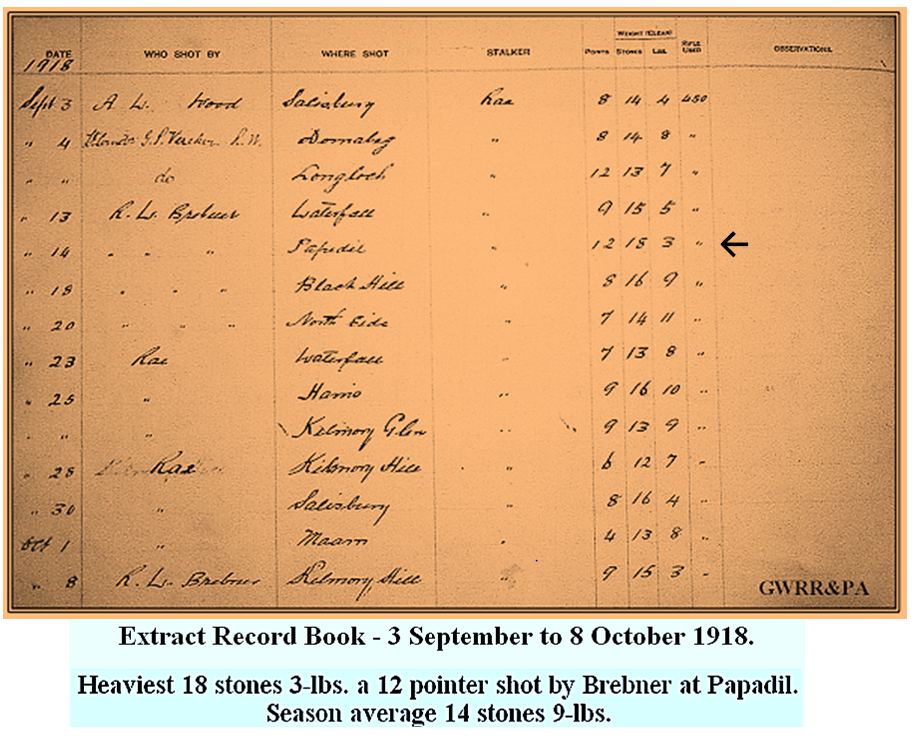 DATE WHO SHOT BY WHERE SHOT STALKER POINTS WEIGHT (CLEAN) STONES LBS. RIFLE USED OBSERVATIONS.
1918
Sept 3 A. W. Wood Salisbury Rae 8 14 4 450
" 4 G. P. R. N. " 8 14 8 "
" " do Longloch " 12 13 7 "
" 13 R. L. Brebner Waterfall " 9 15 5 "
" 14 " " " Papidil " 12 18 3 " ←
" 18 " " " Black Hill " 8 16 9 "
" 20 " " " North Side " 7 14 11 "
" 23 Rae Waterfall " 7 13 8 "
" 25 " Harris " 9 16 10 "
" " " Kilmory Glen " 9 13 9 "
" 28 Rae Kilmory Hill " 6 12 7 "
" 30 " Salisbury " 8 16 4 "
Oct 1 " Maam " 4 13 8 "
" 8 R. L. Brebner Kilmory Hill " 9 15 3 "
GWRR&PA
Extract Record Book - 3 September to 8 October 1918.
Heaviest 18 stones 3-lbs. a 12 pointer shot by Brebner at Papadil.
Season average 14 stones 9-lbs.